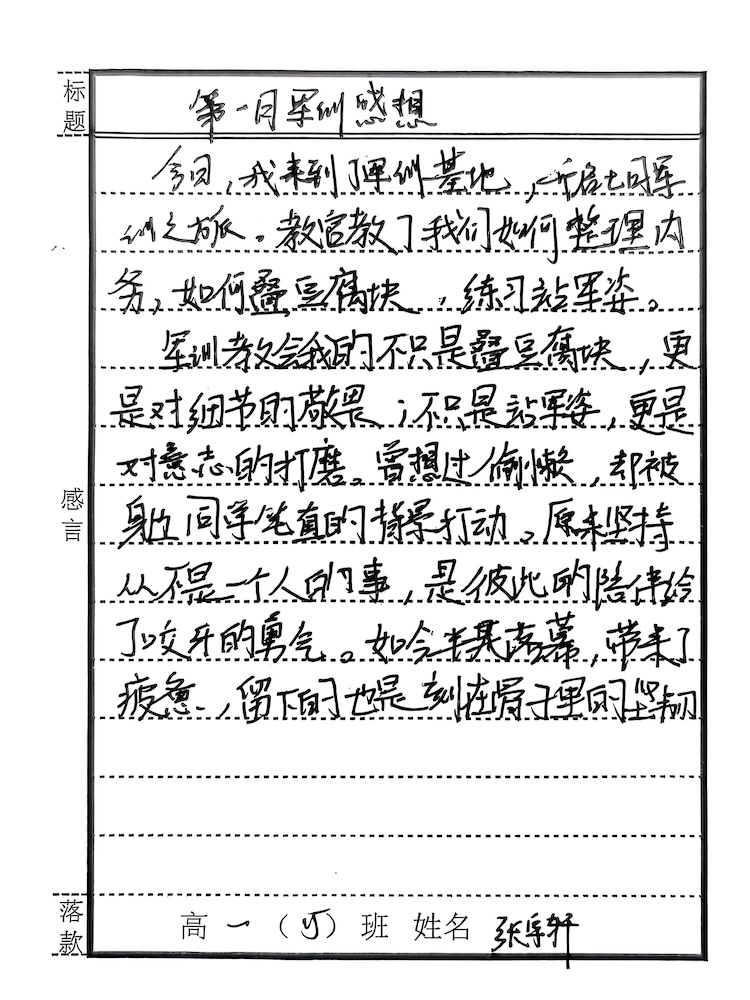 标题
第一日军训感想
今日，我来到了军训基地，开启七日军
训之旅。教官教了我们如何整理内
务，如何叠豆腐块，练习站军姿。
军训教会我的不只是叠豆腐块，更
是对细节的敬畏；不只是站军姿，更是
对意志的打磨。曾想过偷懒，却被
身边同学笔直的背影打动。原来坚持
从不是一个人的事，是彼此的陪伴给
了咬牙的勇气。如今半其落幕，带来了
疲惫，留下的也是刻在骨子里的坚韧
感言
落款
高一（）班 姓名 张宇轩